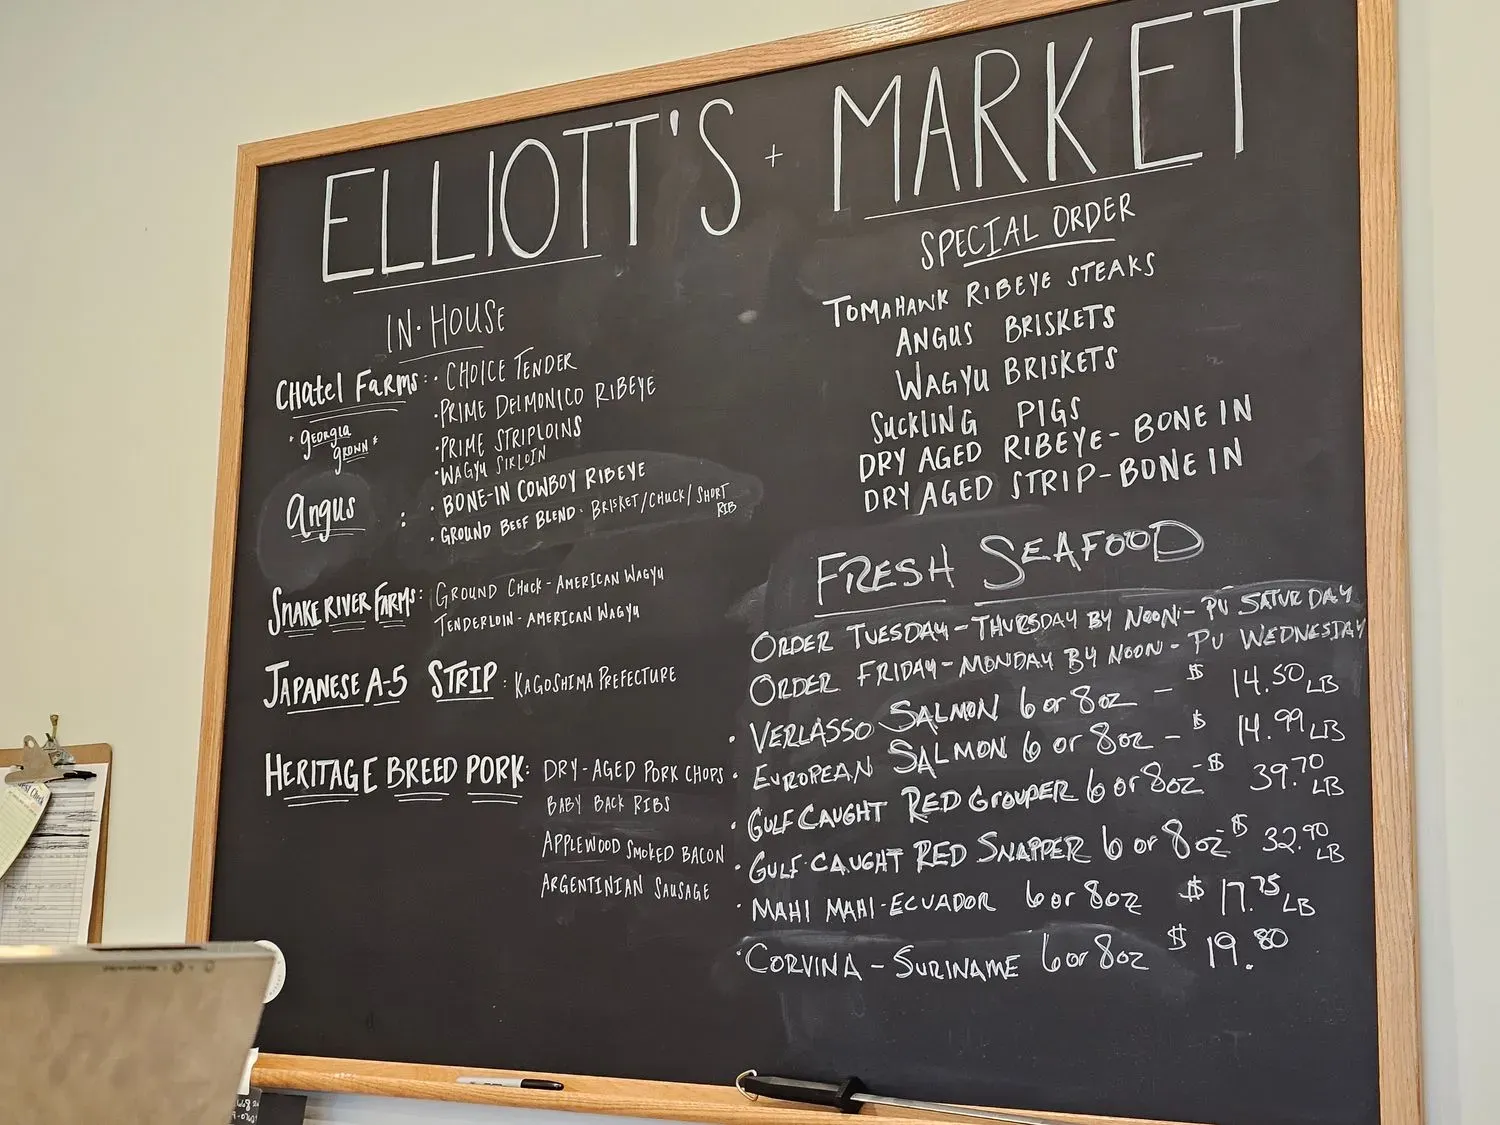 ELLIOTT'S + MARKET
IN-HOUSE
CHATEL FARMS: · CHOICE TENDER
"GEORGIA GROWN"
· PRIME DELMONICO RIBEYE
· PRIME STRIPLOINS
· WAGYU SIRLOIN
ANGUS : · BONE-IN COWBOY RIBEYE
· GROUND BEEF BLEND - BRISKET/CHUCK/SHORT RIB
SNAKE RIVER FARMS: GROUND CHUCK - AMERICAN WAGYU
TENDERLOIN - AMERICAN WAGYU
JAPANESE A-5 STRIP : KAGOSHIMA PREFECTURE
HERITAGE BREED PORK: DRY-AGED PORK CHOPS
BABY BACK RIBS
APPLEWOOD SMOKED BACON
ARGENTINIAN SAUSAGE
SPECIAL ORDER
TOMAHAWK RIBEYE STEAKS
ANGUS BRISKETS
WAGYU BRISKETS
SUCKLING PIGS
DRY AGED RIBEYE - BONE IN
DRY AGED STRIP - BONE IN
FRESH SEAFOOD
ORDER TUESDAY - THURSDAY BY NOON - PU SATURDAY
ORDER FRIDAY - MONDAY BY NOON - PU WEDNESDAY
· VERLASSO SALMON 6 or 8oz - $ 14.50 LB
· EUROPEAN SALMON 6 or 8oz - $ 14.99 LB
· GULF CAUGHT RED GROUPER 6 or 8oz - $ 39.70 LB
· GULF-CAUGHT RED SNAPPER 6 or 8oz - $ 32.90 LB
· MAHI MAHI - ECUADOR 6 or 8oz $ 17.75 LB
· CORVINA - SURINAME 6 or 8oz $ 19.80